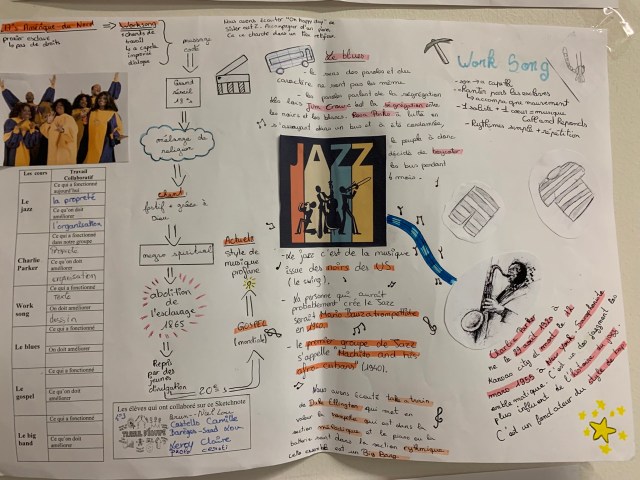 17°s Amérique-du-Nord
premier esclave
pas de droits
Work song
chants de
travail
a capela
improvisé
dialogue
passage
conté
Grand
réveil
18°s
mélange de
religion
chant
fortif + grâce à
Dieu
negro spirituel
abolition
de
l'esclavage
1865
Repris
par des
jeunes
divulgation
20°s
GOSPEL
(mondiale)
Actuels
style de
musique
profane
Nous avons écouter "Oh happy day" de
Sister act 2. Accompagner d'un piano.
Ce un chanté dans un film religieux.
Le blues
- le sens des paroles et du
caractère ne sont pas le même.
- les paroles parlent de la ségrégation
les lois Jim Crow c'est la ségrégation entre
les noirs et les blancs. Rosa Parks a lutté en
s'assayant dans un bus et a été condamnée.
le peuple à donc
décidé de boycoter
les bus pendant
mois.
JAZZ
- Le jazz c'est de la musique
issue des noirs des US
(le swing).
- La personne qui aurait
probablement crée le Jazz
serait Mario Bauza trompettiste
en
- le premier groupe de Jazz
s'appelle "Machito and his
afro cubans" (1940).
Nous avons écouté take a train
de Duke Ellington qui met en
valeur la trompette qui est dans la
section mélodique et le piano ou la
batterie sont dans la section rythmique.
Cela ensemble est un Big Bang.
Work Song
a capella
- Chantés par les esclaves
accompagne mouvement
- 1 soliste + 1 chœur = musique
Call and Responds
- Rythmes simple + répétition
Charlie Parker
né le 29 août 1920 à
Kansas city et mort le 12
mars 1955 à New York. Saxophoniste
emblématique. C'est un des jazzmen les
plus influent de l'histoire du jazz.
C'est un fondateur du style be bop
Les cours
Travail
Collaboratif
Le
jazz
Ce qui a fonctionné
aujourd'hui
la propreté
Ce qu'on doit
améliorer
l'organisation
Charlie
Parker
Ce qui a fonctionné
dans notre groupe
propreté
Ce qu'on doit
améliorer
organisation
Work
song
Ce qui a fonctionné
Texte
On doit améliorer
dessin
Le blues
Ce qui a fonctionné
On doit améliorer
Le
gospel
Ce qui a fonctionné
Ce qu'on doit
améliorer
Le big
band
Ce qui a fonctionné
Ce qu'on doit
améliorer
Les élèves qui ont collaboré sur ce Sketchnote
TRAVAIL D'ÉQUIPE
Lou
Castello Camille
Claire